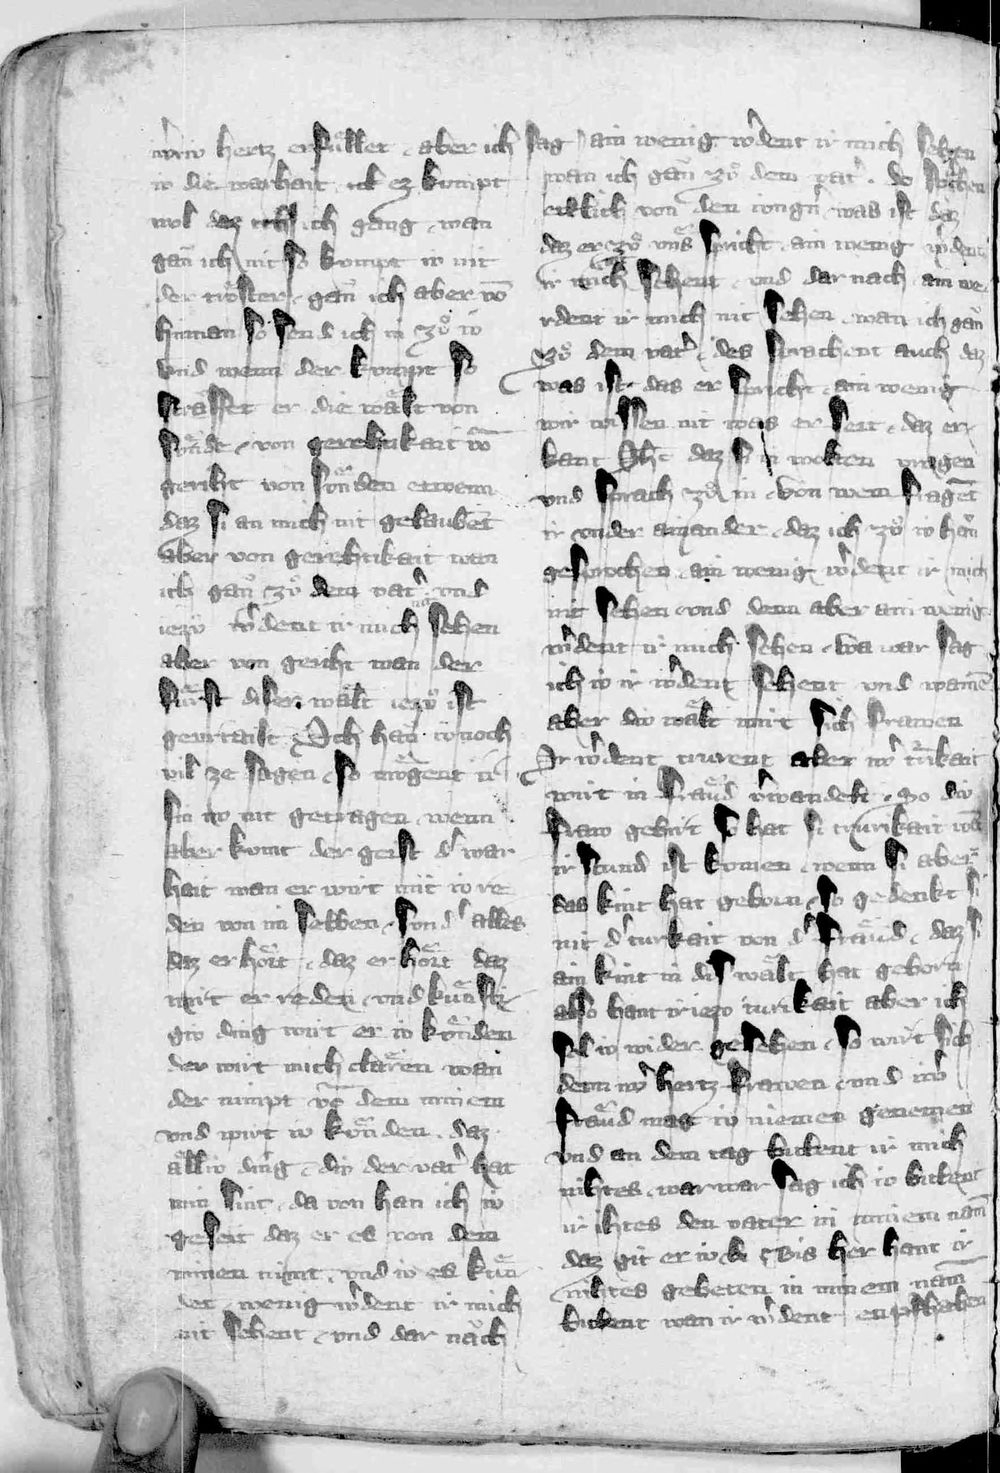 iwriv hertz erfúllet aber ich sag
iv die warhait ich ez kumpt
wol daz ich gang wan
gan ich nit so kumpt iv nit
der trôster gan ich aber vō
hinnan so send ich in zů iv
vnd wenn der kumpt so
strâffet er die wâlt von
sṹnde von gerehtikait vō
geriht von sṹnden etwenn
daz si an mich nit gelaubēt
aber von gerehtikait wan
ich gan zů dem vatˀ vnd
iezo wˀdent ir mich nit sehen
aber von geriht wan der
fúrst diser wâlt iezo ist
geurtailt Ich han iv noch
vil ze sagen so mṽgent ir
sin nv nit getragen wenn
aber kumt der geist dˀ war
hait wan er wirt nit iv re
den von im selben sundˀ alles
daz er hôrt daz er hôrt daz
wirt er reden vnd kúnfti
giv ding wirt er iv kúnden
der wirt mich clâren wan
der nimpt vō dem minem
vnd wirt iv kúnden daz
âlliv ding div der vatˀ hat
min sint da von han ich iv
geseit daz er es von dem
minen nimt vnd iv es kún
det wenig wˀdent ir mich
nit sehent vnd dar nach
ain wenig wˀdent ir mich sehen
wan ich gan zů dem vatˀ do sprachen
etlich von den iungˀn was ist daz
daz er zů vns spricht ain wenig wˀdent
ir mich sehent vnd dar nach ain we
rdent ir mich nit sehen wan ich gan
zů dem vatˀ des sprachent auch daz
was ist das er spricht ain wenig
wir wissen nit was er seit daz er
kant Jhc daz si in wolten vragen
vnd sprach zů in von wem fragēt
ir vnder ainander daz ich zů iv han
gesprochen ain wenig wˀdent ir mich
nit sehen vnd denn aber ain wenig
wˀdent ir mich sehen wa war sag
ich iv ir wˀdent sehent vnd wainē
aber div wâlt wirt sich frawen
Ir wˀdent trurent aber iwˀ turikait
wirt in frâud vˀwandelt So div
fraw gebirt so hat si trurikait wā
ir stund ist komen wenn si aber
das kint hat geborn so gedenkt si
nit dˀ turkait von dˀ frâud daz si
ain kint in dis wâlt hat geborn
also hant ir iezo turikait aber ich
sol iv wider gesehen so wirt sich
denn iwˀ hertz frawen vnd iwˀ
frâud mag iv niemen genemen
vnd an dem tag bittent ir mich
nihtes warwar sag ich iv bittent
ir ihtes den vater in minem nam
daz git er iv Bis her hant ir
nihtes gebeten in minem nam
bittent wan ir wˀdent enpfhahen